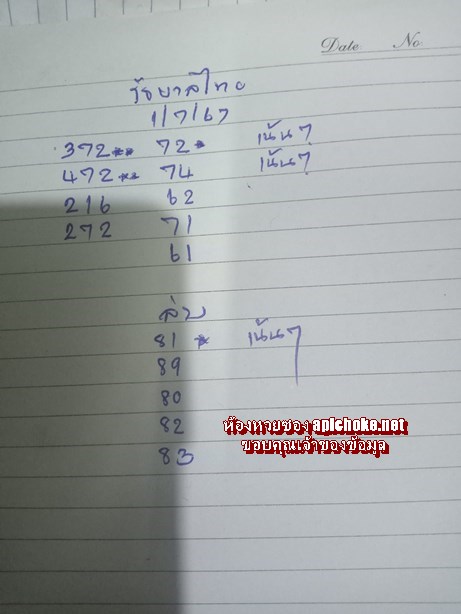 Date No.
รัฐบาลไทย
1/7/67
372** 72* เน้นๆ
472** 74 เน้นๆ
216 62
272 71
61
ล่าง
81 * เน้นๆ
89
80
82
83
ห้องหวยซอง apichoke.net
ขอบคุณเจ้าของข้อมูล